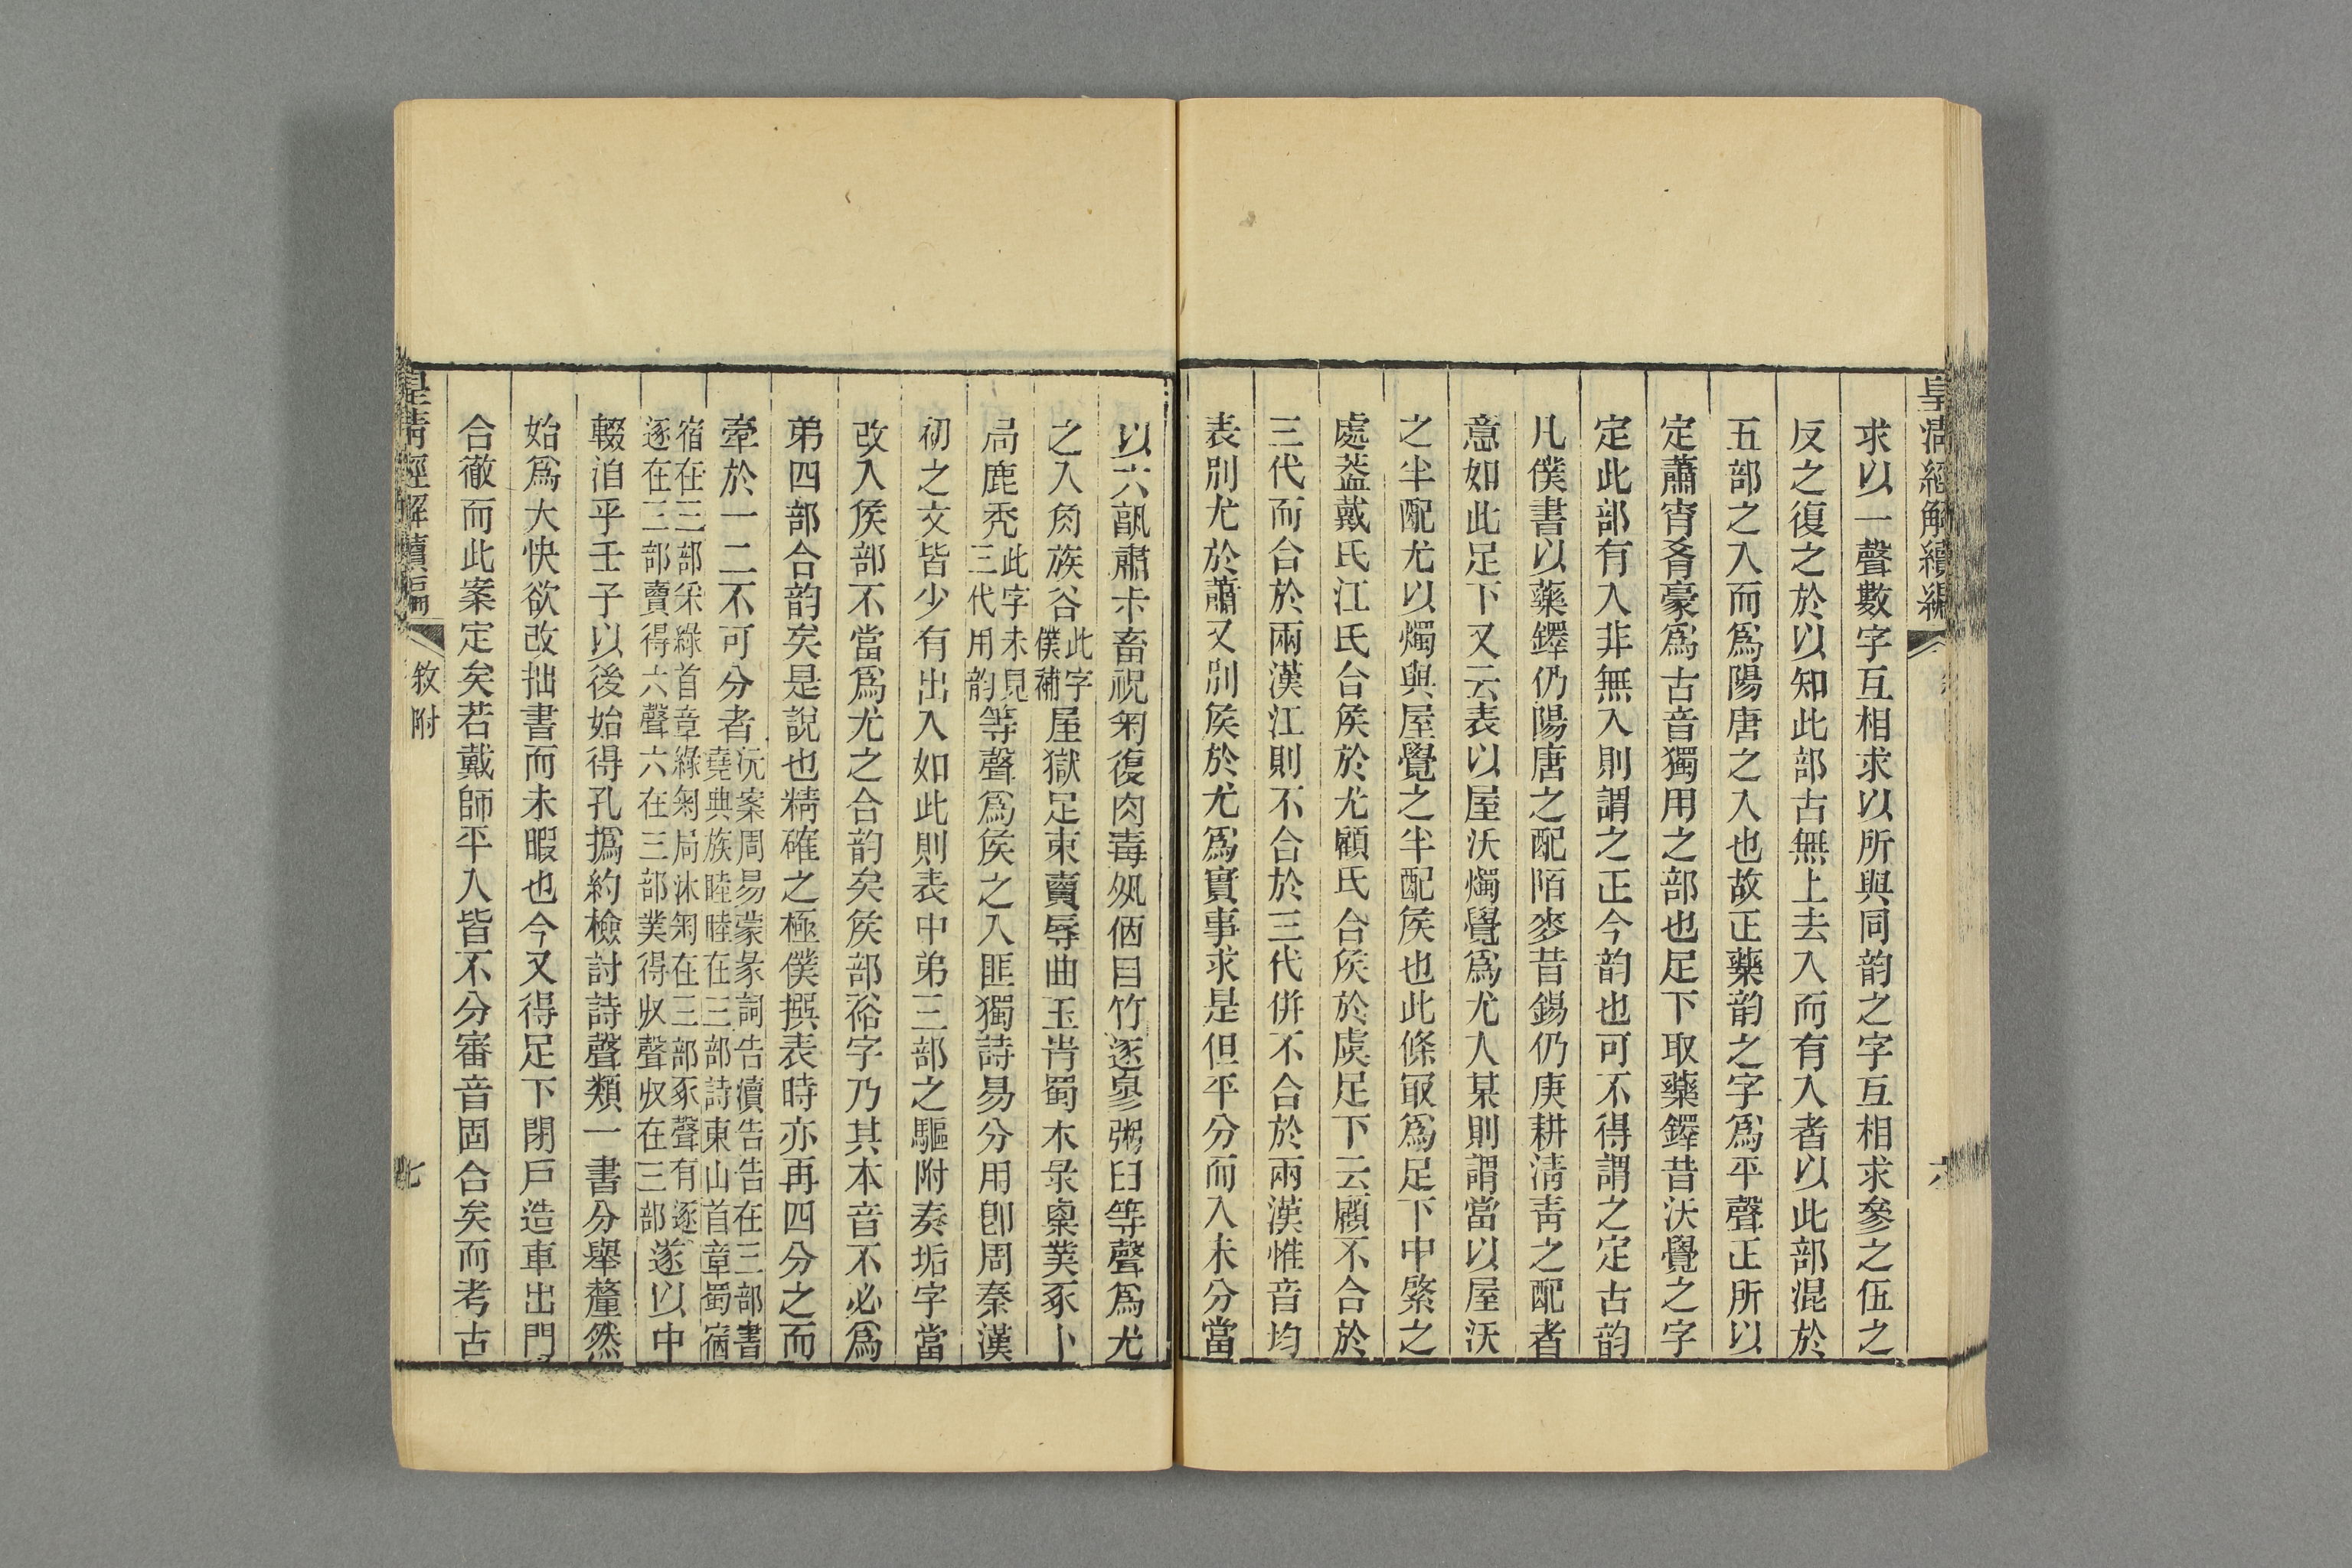 皇清經解續編
六
求以一聲數字互相求以所與同韵之字互相求參之伍之
反之復之於以知此部古無上去入而有入者以此部混於
五部之入而爲陽唐之入也故正藥韵之字爲平聲正所以
定蕭宵肴豪爲古音獨用之部也足下取藥鐸昔沃覺之字
定此部有入非無入則謂之正今韵也可不得謂之定古韵
凡僕書以藥鐸仍陽唐之配陌麥昔錫仍庚耕淸靑之配者
意如此足下又云表以屋沃燭覺爲尤入某則謂當以屋沃
之半配尤以燭與屋覺之半配矦也此條冣爲足下中綮之
處葢戴氏江氏合矦於尤顧氏合矦於虞足下云顧不合於
三代而合於兩漢江則不合於三代併不合於兩漢惟音均
表別尤於蕭又別矦於尤爲實事求是但平分而入未分當
以六孰肅尗畜祝匊復肉毒夙佰目竹逐翏粥臼等聲爲尤
之入角族谷此字僕補屋獄足束賣辱曲玉肯蜀木彔稟菐豕卜
局鹿禿此字未見三代用韵等聲爲矦之入匪獨詩易分用卽周秦漢
初之文皆少有出入如此則表中弟三部之驅附奏垢字當
改入矦部不當爲尤之合韵矣矦部裕字乃其本音不必爲
弟四部合韵矣是說也精確之極僕撰表時亦再四分之而
牽於一二不可分者沅案周易蒙彖詞告瀆告告在三部書堯典族睦睦在三部詩東山首章蜀宿
宿在三部采綠首章綠匊局沐匊在三部豖聲有逐逐在三部賣得六聲六在三部菐得尗聲尗在三部遂以中
輟洎乎壬子以後始得孔撝約檢討詩聲類一書分舉釐然
始爲大快欲改拙書而未暇也今又得足下閉戸造車出門
合徹而此案定矣若戴師平入皆不分審音固合矣而考古
皇淸經解續編
敘附
七